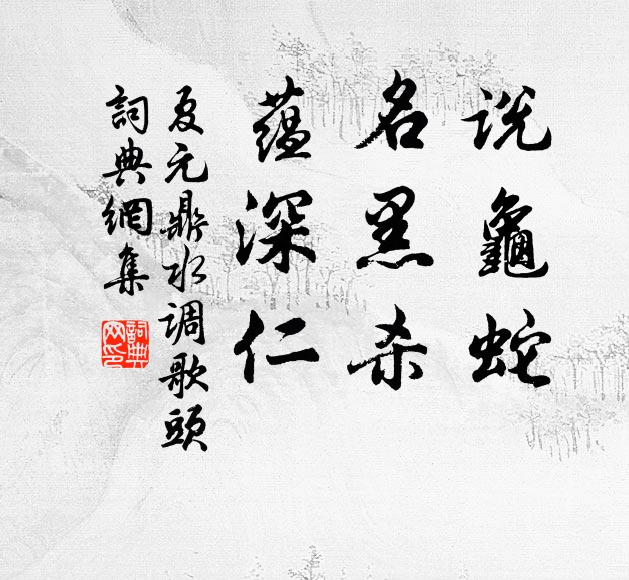 說龜蛇
名黑杀
蕴深仁
夏元鼎水调歌頭
詞典網集
詞典
网印